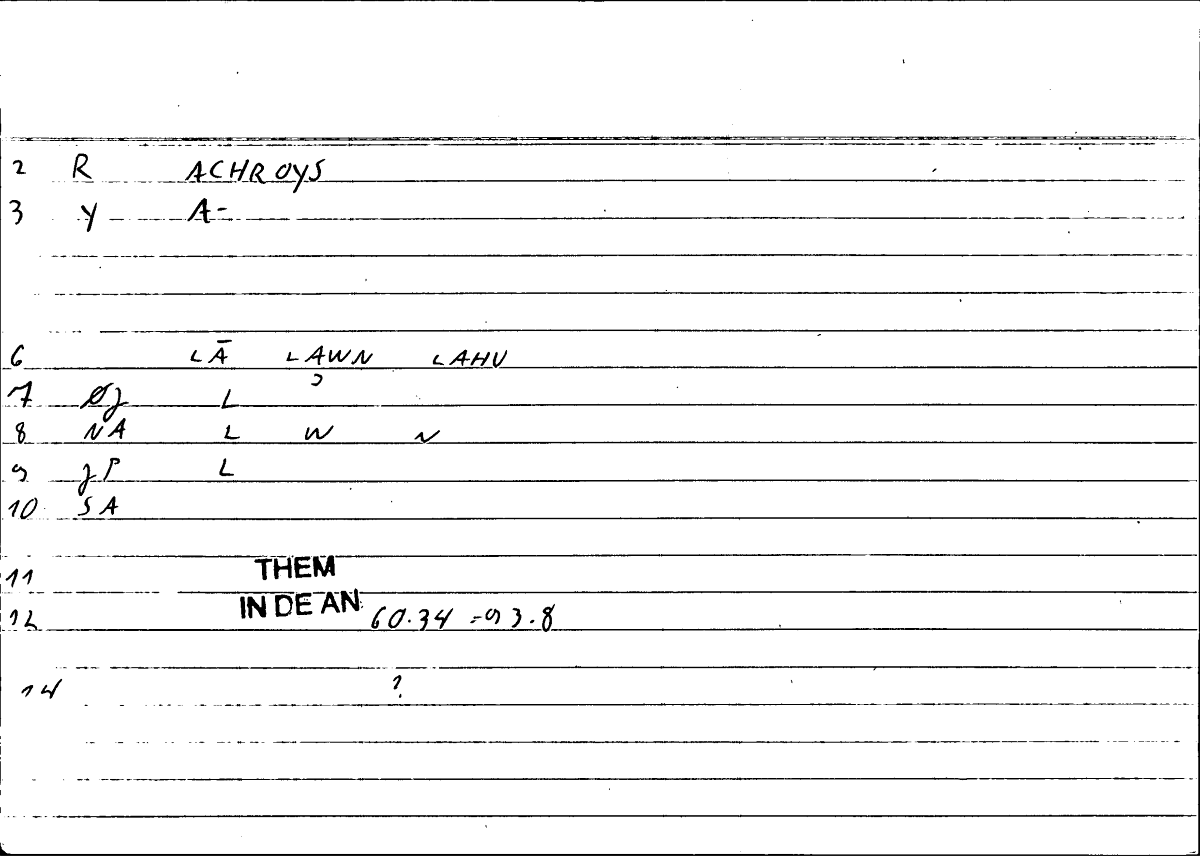 2 R ACHROYS
3 Y A-
6 LĀ LAWN LAHU
7 Øg L ?
8 NA L W N
9 gP L
10 SA
11 THEM
12 IN DE AN 60.34 = 93.8
14 ?